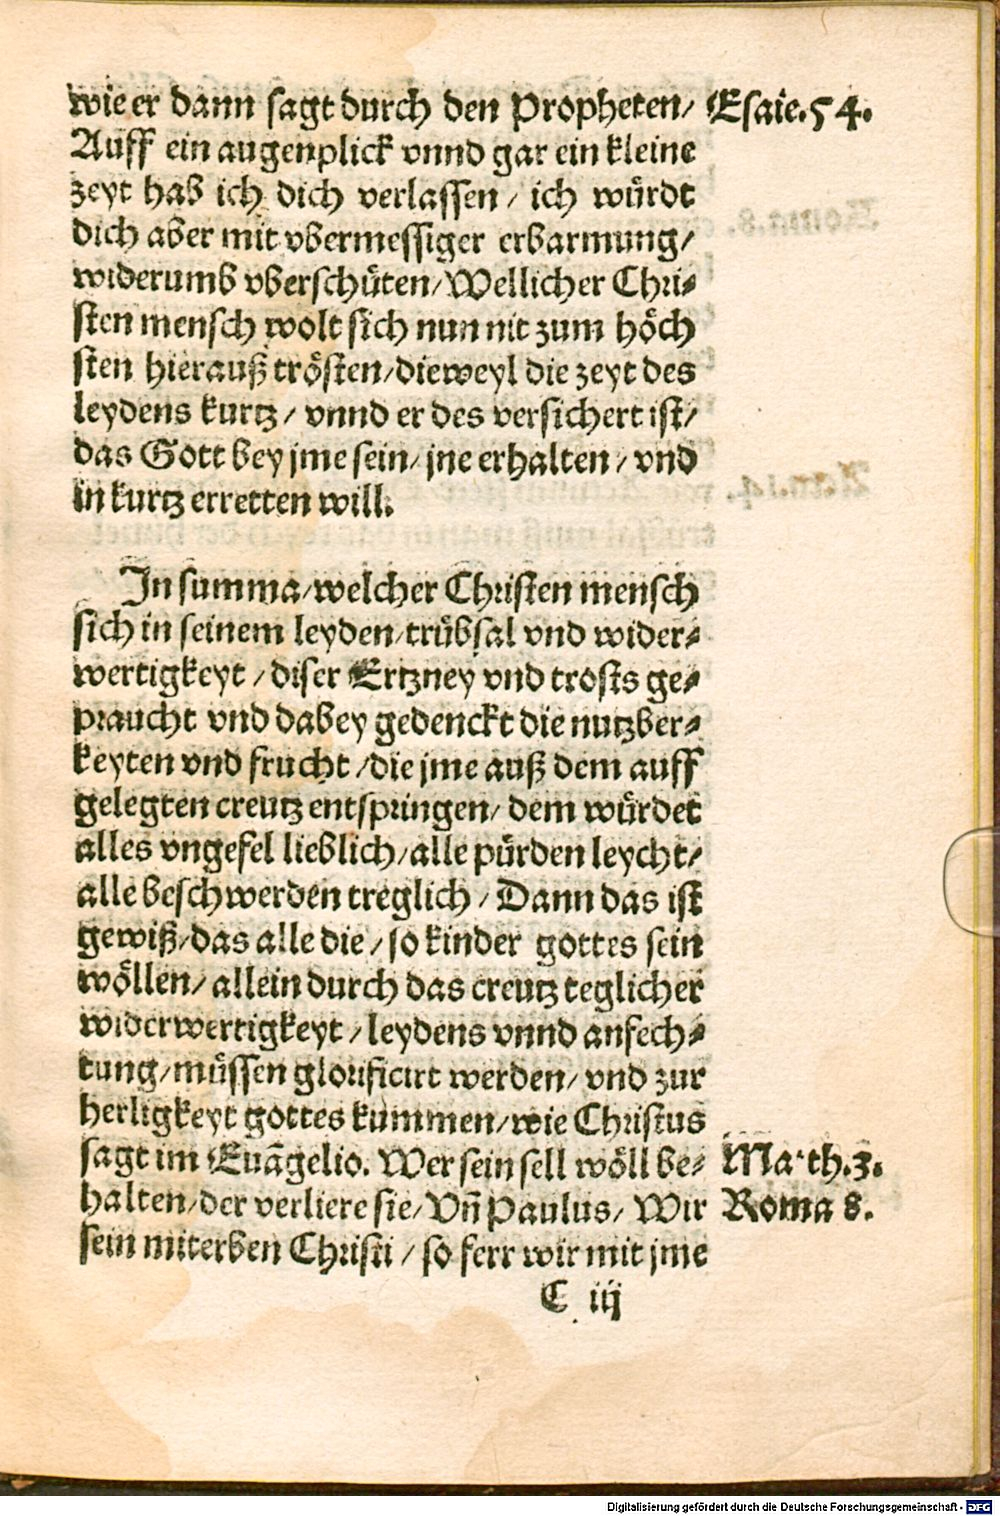 wie er dann sagt durch den Propheten/ Esaie.54.
Auff ein augenplick vnnd gar ein kleine
zeyt hab ich dich verlassen / ich würdt
dich aber mit vbermessiger erbarmung/
widerumb vberschüten/Wellicher Chri-
sten mensch wolt sich nun nit zum höch
sten hierauß trösten/dieweyl die zeyt des
leydens kurtz / vnnd er des versichert ist/
das Gott bey jme sein/ jne erhalten / vnd
in kurtz erretten will.
In summa/welcher Christen mensch
sich in seinem leyden/trübsal vnd wider-
wertigkeyt / diser Ertzney vnd trosts ge-
praucht vnd dabey gedenckt die nutzber-
keyten vnd frucht /die jme auß dem auff
gelegten creutz entspringen/ dem würdet
alles vngefel lieblich/alle pürden leycht/
alle beschwerden treglich / Dann das ist
gewiß/das alle die / so kinder gottes sein
wöllen/ allein durch das creutz teglicher
widerwertigkeyt / leydens vnnd anfech-
tung/müssen glorificirt werden/ vnd zur
herligkeyt gottes kummen/wie Christus
sagt im Euāgelio. Wer sein sell wöll be- Math.3.
halten/der verliere sie/ Vn̄ Paulus/ Wir Roma 8.
sein miterben Christi / so ferr wir mit jme
C iij
Digitalisierung gefördert durch die Deutsche Forschungsgemeinschaft - DFG